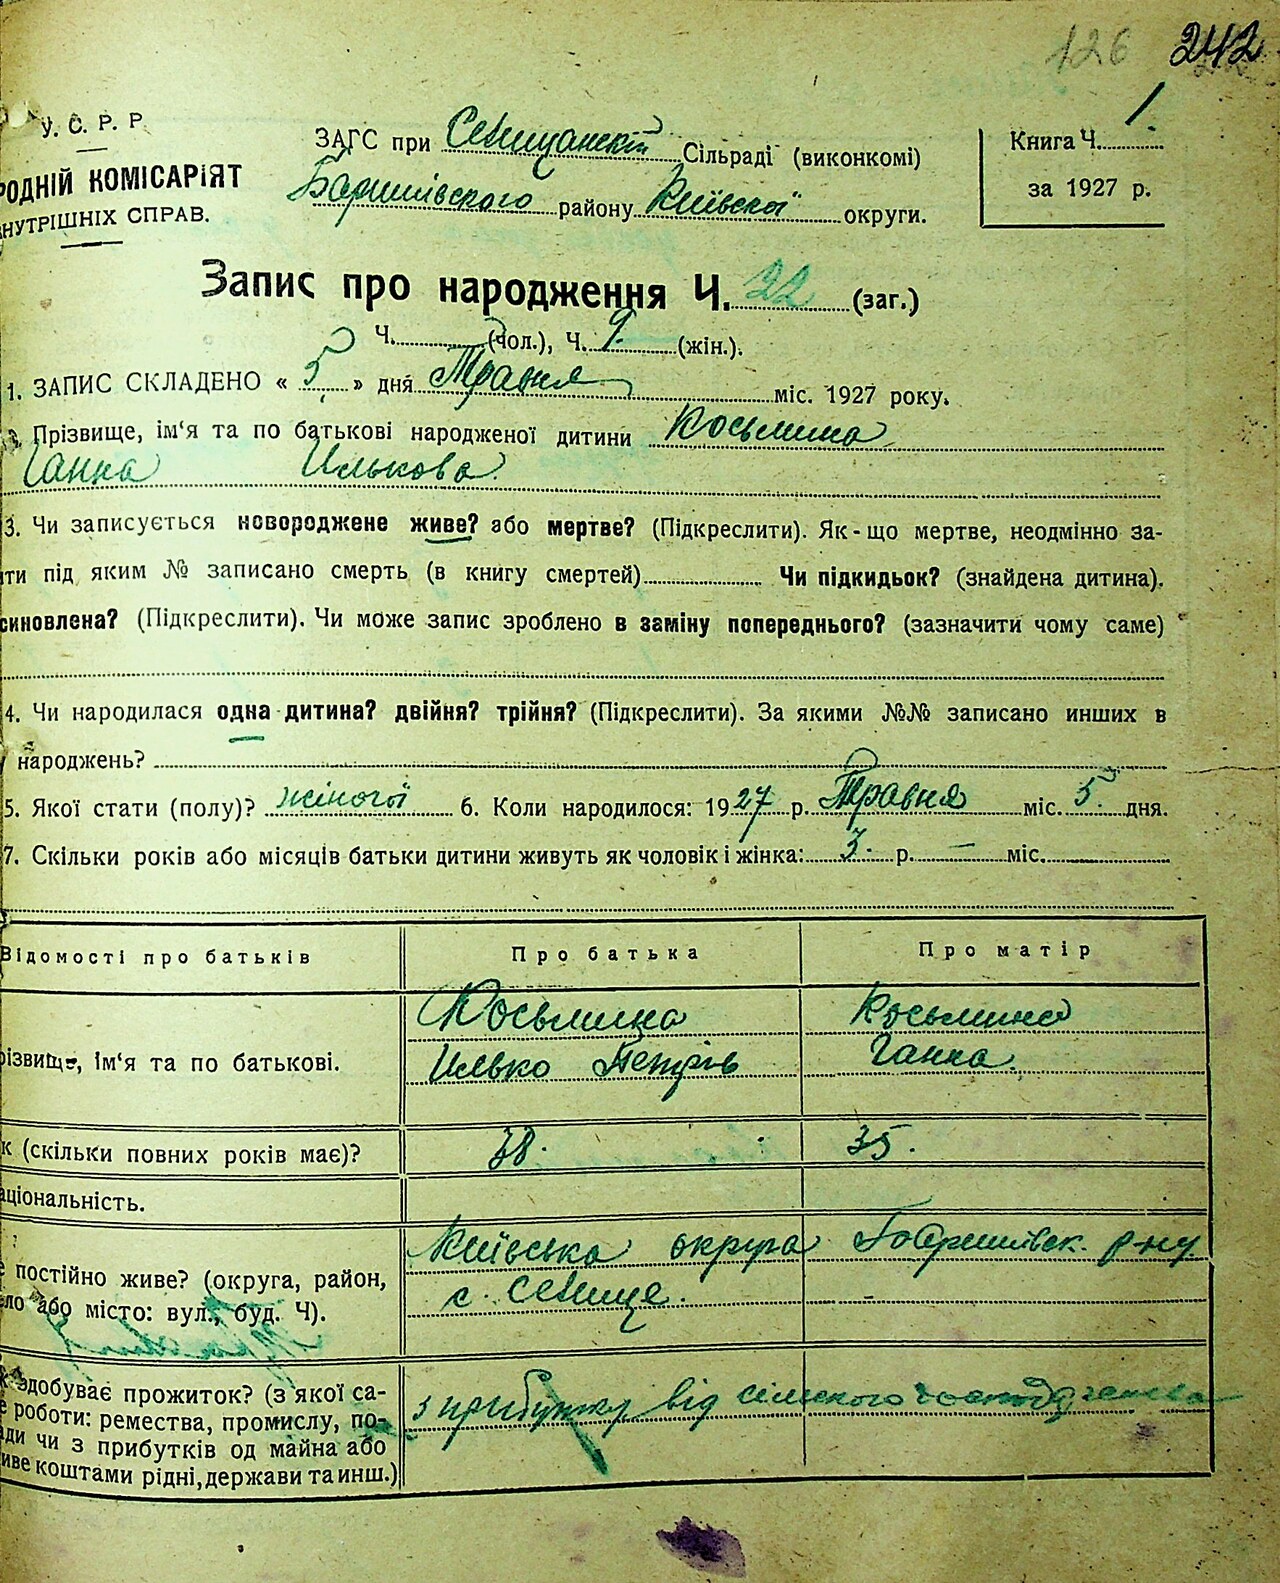 126 242
У. С. Р. Р.
РОДНІЙ КОМІСАРІЯТ
НУТРІШНІХ СПРАВ.
ЗАГС при Селищанскій Сільраді (виконкомі)
Баришівского району Київскої округи.
Книга Ч. 1.
за 1927 р.
Запис про народження Ч. 22 (заг.)
Ч. (чол.), Ч. 9. (жін.).
1. ЗАПИС СКЛАДЕНО « 5 » дня Травня міс. 1927 року.
Прізвище, ім'я та по батькові народженої дитини Косьмина
Ганна Илькова.
3. Чи записується новороджене живе? або мертве? (Підкреслити). Як-що мертве, неодмінно за-
ти під яким № записано смерть (в книгу смертей) Чи підкидьок? (знайдена дитина).
синовлена? (Підкреслити). Чи може запис зроблено в заміну попереднього? (зазначити чому саме)
4. Чи народилася одна дитина? двійня? трійня? (Підкреслити). За якими №№ записано инших в
народжень?
5. Якої стати (полу)? жіночої 6. Коли народилося: 1927 р. Травня міс. 5. дня.
7. Скільки років або місяців батьки дитини живуть як чоловік і жінка: 3. р. — міс.
Відомості про батьків Про батька Про матір
різвище, ім'я та по батькові.
Косьмина Косьмина
Илько Петрів Ганна.
к (скільки повних років має)? 38. 35.
аціональність.
е постійно живе? (округа, район,
ло або місто: вул., буд. Ч).
Київська округа Баришівск. р-ну
с. Селище.
к здобуває прожиток? (з якої са-
е роботи: ремества, промислу, по-
ади чи з прибутків од майна або
иве коштами рідні, держави та инш.)
з прибутку від сільского господарства